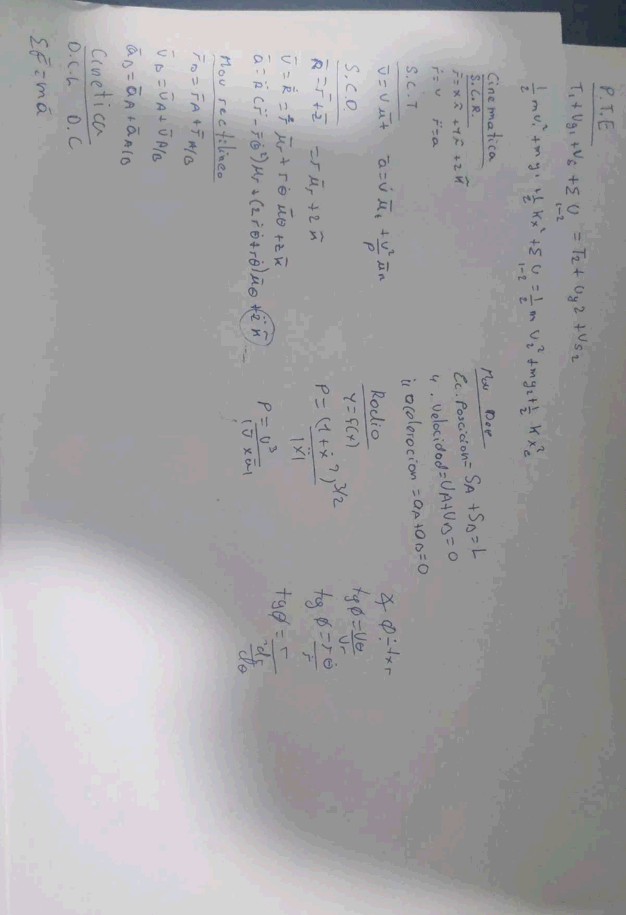 P.T.E
T₁ + Vg₁ + Vs₁ + Σ U₁₋₂ = T₂ + Vg2 + Vs₂
½ m v₁² + mgy₁ + ½ kx² + Σ U₁₋₂ = ½ m v₂² + mgy₂ + ½ kx₂²
Cinematica
S.C.R.
r̄ = v r̄ = a
S.C.T
v̄ = v ū_t ā = v̇ ū_t + v²/ρ ū_n
S.C.O
R̄ = r̄ + z̄ = r ū_r + z k̄
v̄ = Ṙ = ṙ ū_r + r θ̇ ū_θ + ż k̄
ā = R̈ (r̈ - rθ̇²) u_r + (2ṙθ̇ + rθ̈) ū_θ + z̈ k̄
Mov rectilineo
r̄_B = r̄_A + r̄_A/B
v̄_B = v̄_A + v̄_A/B
ā_B = ā_A + ā_A/B
Cinetica
D.C.L D.C
Σ F̄ = mā
Mov Dep
Ec. Posicion = S_A + S_B = L
" . Velocidad = V_A + V_B = 0
" aceleracion = a_A + a_B = 0
Radio
y = f(x)
ρ = (1 + ẋ²)^3/2 / |ẍ|
tgφ = Vθ / Vr
tgφ = rθ̇ / ṙ
tgφ = r / dr/dθ